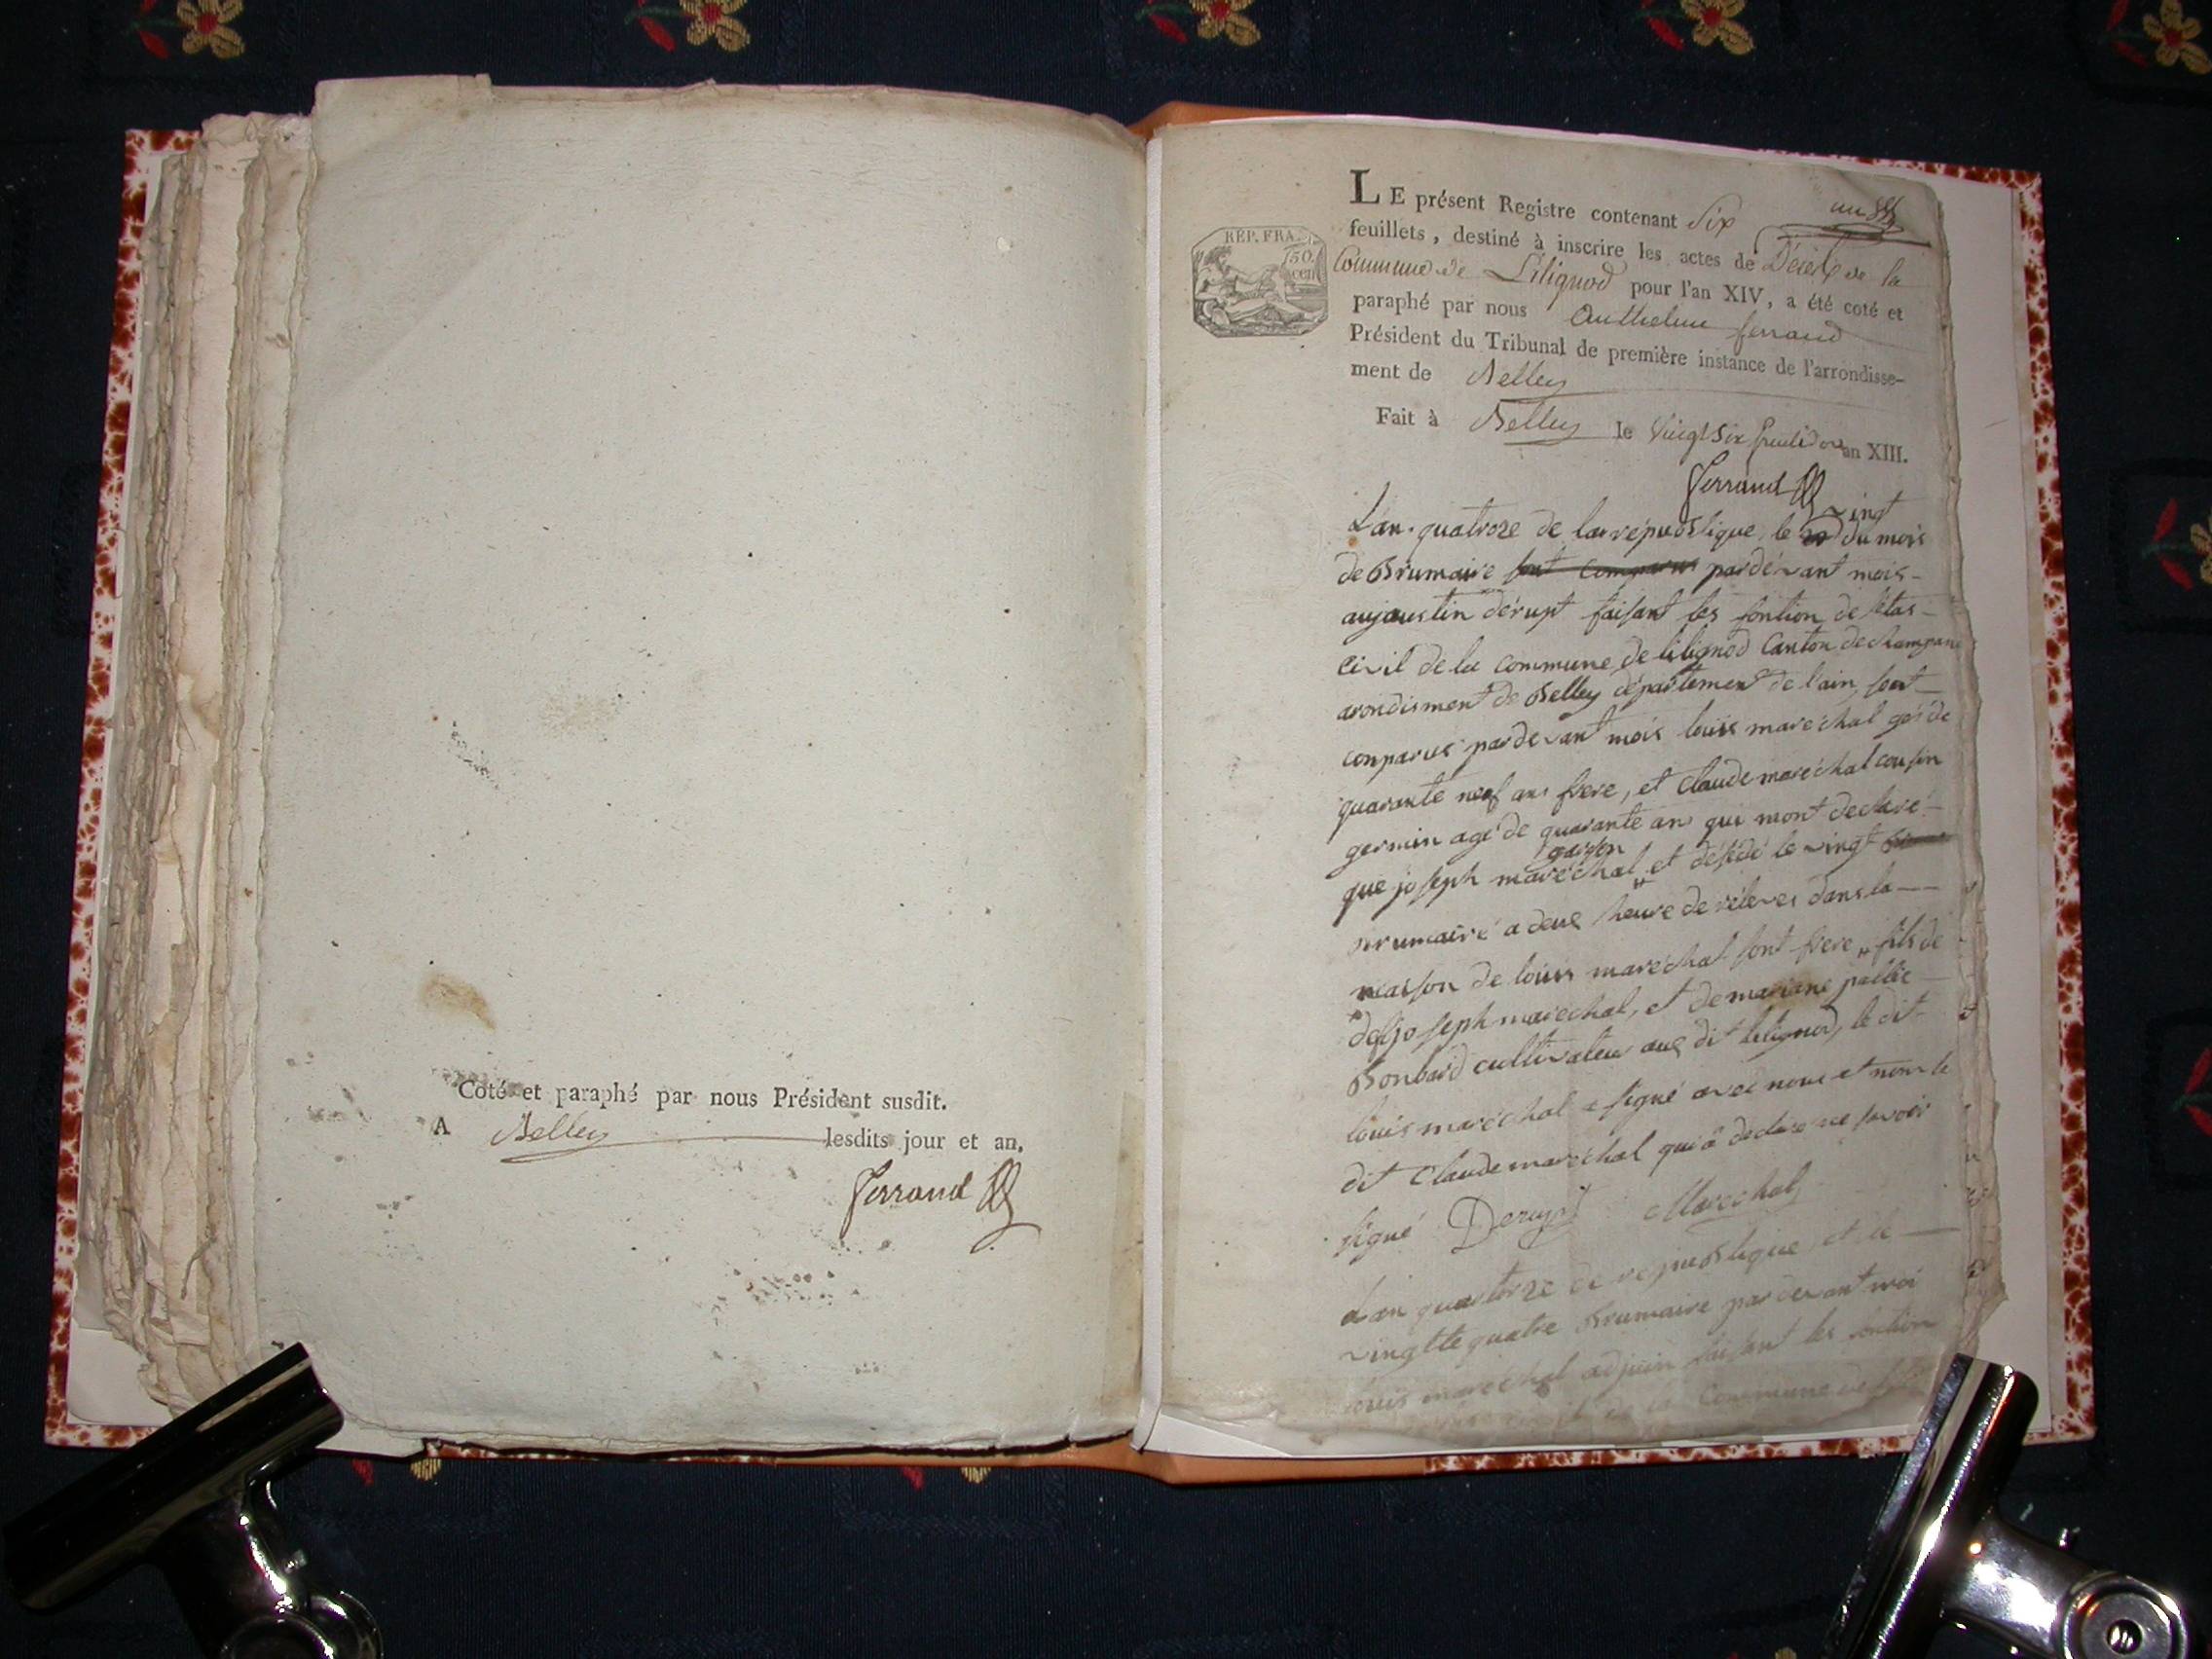 Coté et paraphé par nous Président susdit.
A Belley lesdits jour et an.
Ferrand
REP. FRA.
50.
cen
un
LE présent Registre contenant Six
feuillets, destiné à inscrire les actes de Décès de la
Commune de Lilignod pour l'an XIV, a été coté et
paraphé par nous Anthelme ferrand
Président du Tribunal de première instance de l'arrondisse-
ment de Belley
Fait à Belley le Vingt Six fructidor an XIII.
Ferrand
L'an quatroze de la république, le vingt du mois
de Brumaire sont comparus pardevant mois-
aujoustin dérupt faisant les fontion de l'etas-
civil de la commune de lilignod Canton de champane
arondisment de Belley département de l'ain, sont
conparus pardevant mois louis maréchal gés de
quarante neuf ans frere, et Claude maréchal cousin
germin agé de quarante ans qui mont declaré-
que joseph maréchal garson et desédé le vingt
Brumaire a deux heure de releves dans la
maison de louis maréchal sont frere fils de
joseph marechal, et de mariane
Bonbard cultivateur aux dit lilignod, le dit-
louis maréchal a signé avec nous et nom le
dit Claude maréchal qui a declare ne savoir
signé Derupt Marechal
L'an quatorze de republique et le
vingtte quatre Brumaire pardevant moi
louis maréchal adjoin faisant les fontion
commune de